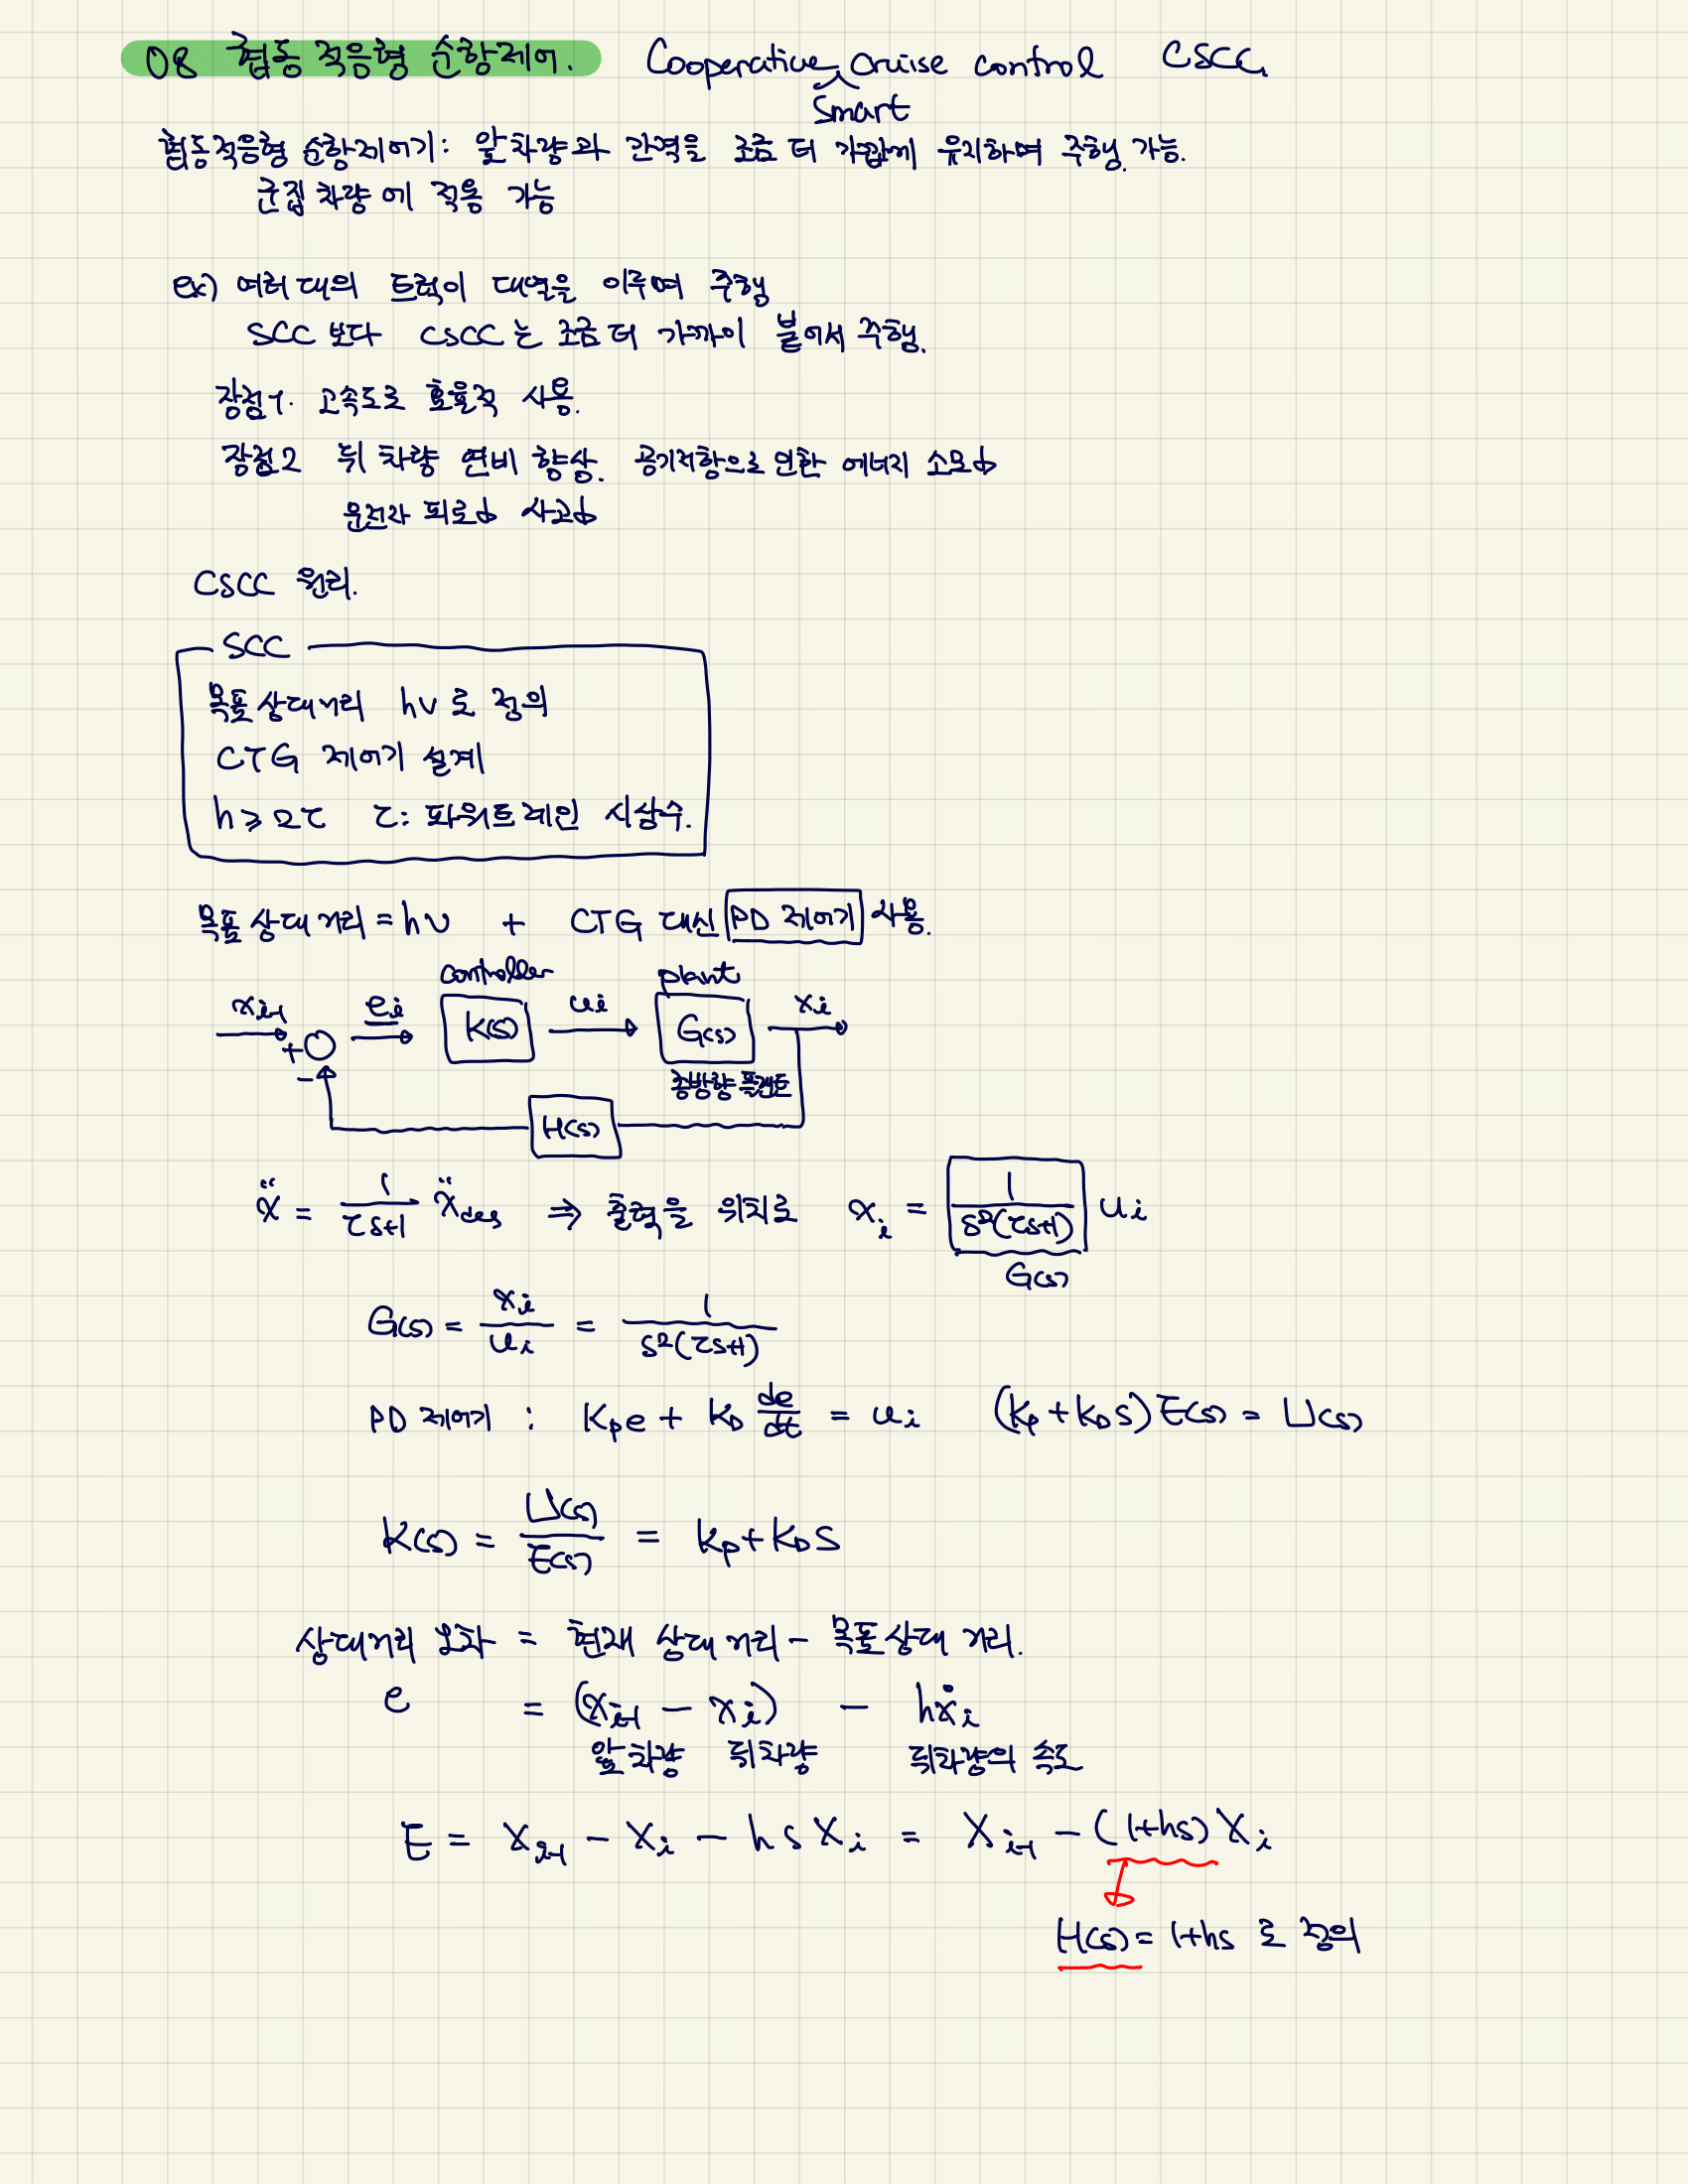 08 협동 적응형 순항제어. Cooperative Smart Cruise control CSCC
협동적응형 순항제어기: 앞차량과 간격을 조금 더 가깝게 유지하며 주행 가능.
군집 차량에 적용 가능
ex) 여러 대의 트럭이 대열을 이루며 주행
SCC 보다 CSCC는 조금 더 가까이 붙어서 주행.
장점1. 고속도로 효율적 사용.
장점2 뒤 차량 연비 향상. 공기저항으로 인한 에너지 소모↓
운전자 피로↓ 사고↓
CSCC 원리.
SCC
목표 상대거리 hv로 정의
CTG 제어기 설계
h ≥ 2τ τ: 파워트레인 시상수.
목표 상대거리 = hv + CTG 대신 PD 제어기 사용.
controller plant
x_{i-1} e_i K(s) u_i G(s) x_i
+ -
종방향 플랜트
H(s)
ẍ = 1/(τs+1) ẍ_des ⇒ 출력을 위치로 x_i = 1/(s²(τs+1)) u_i
G(s)
G(s) = x_i/u_i = 1/(s²(τs+1))
PD 제어기 : K_p e + K_D de/dt = u_i (K_p + K_D s) E(s) = U(s)
K(s) = U(s)/E(s) = K_p + K_D s
상대거리 오차 = 현재 상대거리 - 목표 상대거리.
e = (x_{i-1} - x_i) - hẋ_i
앞차량 뒤차량 뒤차량의 속도
E = X_{i-1} - X_i - hsX_i = X_{i-1} - (1+hs)X_i
H(s) = 1+hs 로 정의